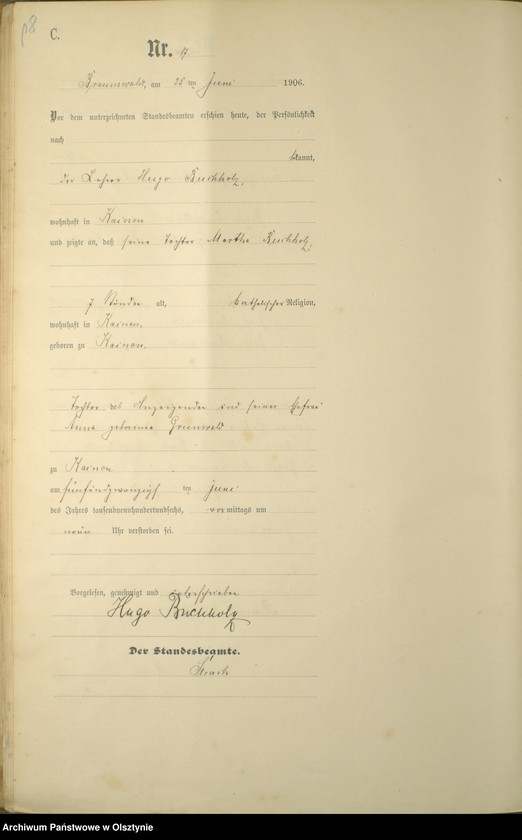 p8
C.
Nr. 17
Braunswald, am 25 ten Juni 1906.
Vor dem unterzeichneten Standesbeamten erschien heute, der Persönlichkeit
nach
bekannt,
der Lehrer Hugo Buchholz,
wohnhaft in Kainen
und zeigte an, daß seine Tochter Martha Buchholz,
7 Stunden alt, katholischer Religion,
wohnhaft in Kainen,
geboren zu Kainen,
Tochter des Anzeigenden und seiner Ehefrau
Anna geborenen Grunwald
zu Kainen
am fünfundzwanzigsten ten Juni
des Jahres tausendneunhundertundsechs, vormittags um
neun Uhr verstorben sei.
Vorgelesen, genehmigt und unterschrieben
Hugo Buchholz
Der Standesbeamte.
Archiwum Państwowe w Olsztynie